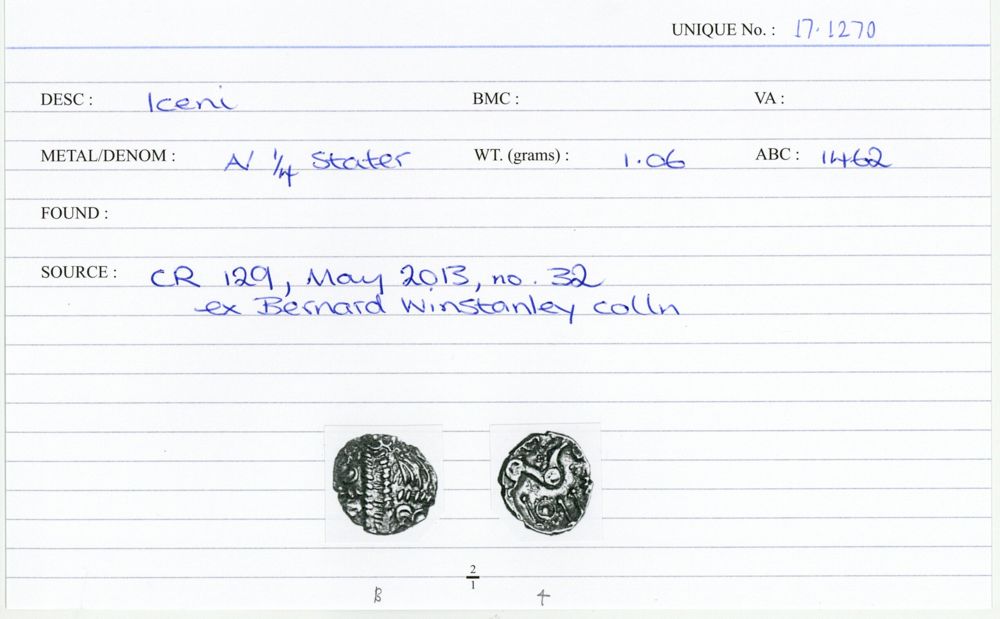 UNIQUE No. : 17.1270
DESC : Iceni BMC : VA :
METAL/DENOM : A/ 1/4 Stater WT. (grams) : 1.06 ABC : 1462
FOUND :
SOURCE : CR 129, May 2013, no. 32
ex Bernard Winstanley colln
2
1
B 4